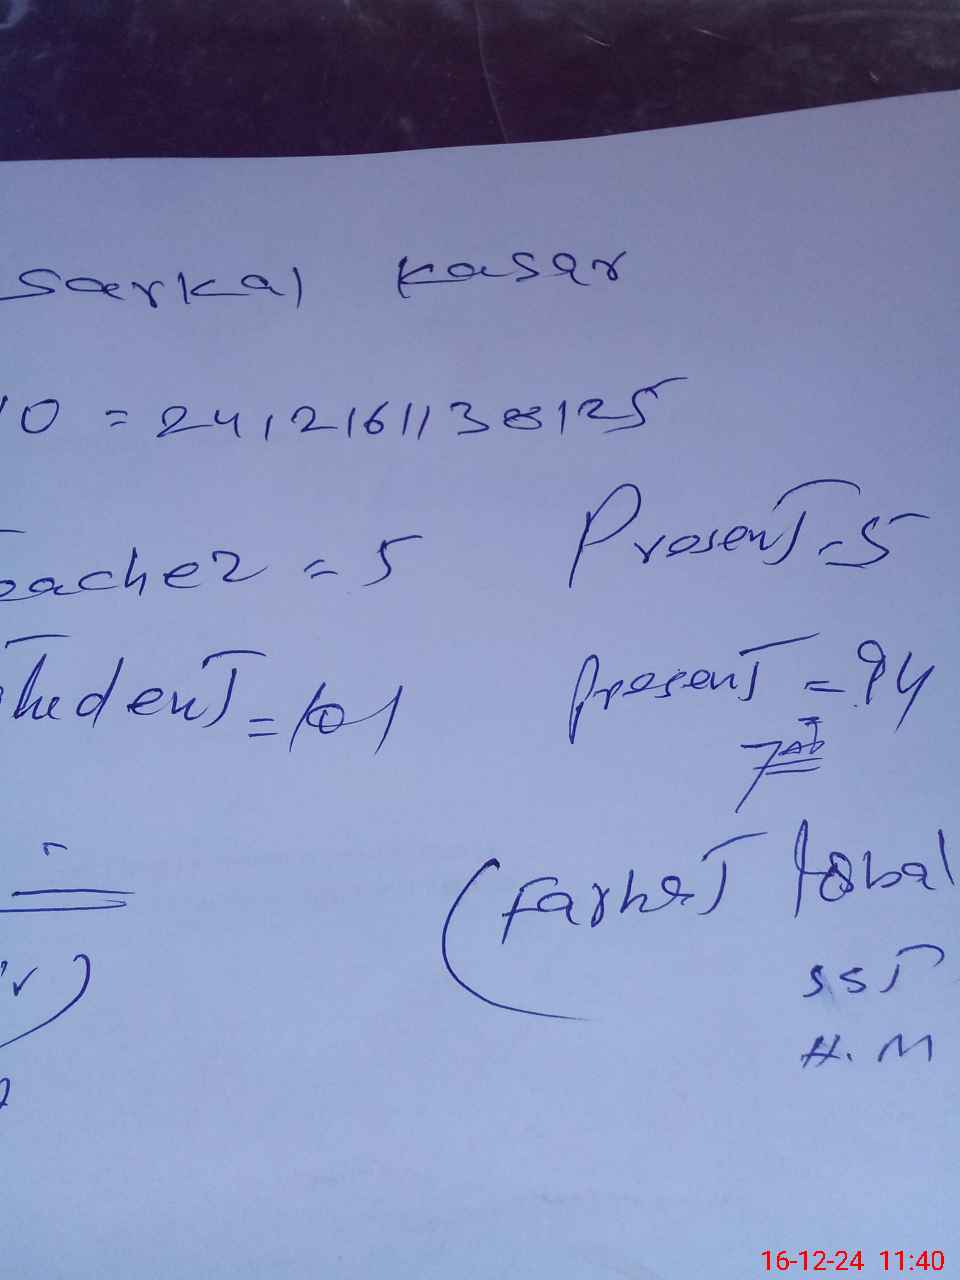 Sarkal Kasar
10 = 2412161138125
Teacher = 5 Present = 5
Student = 101 present = 94
7 Ab
(Farhat Iqbal
SST
H.M
16-12-24 11:40